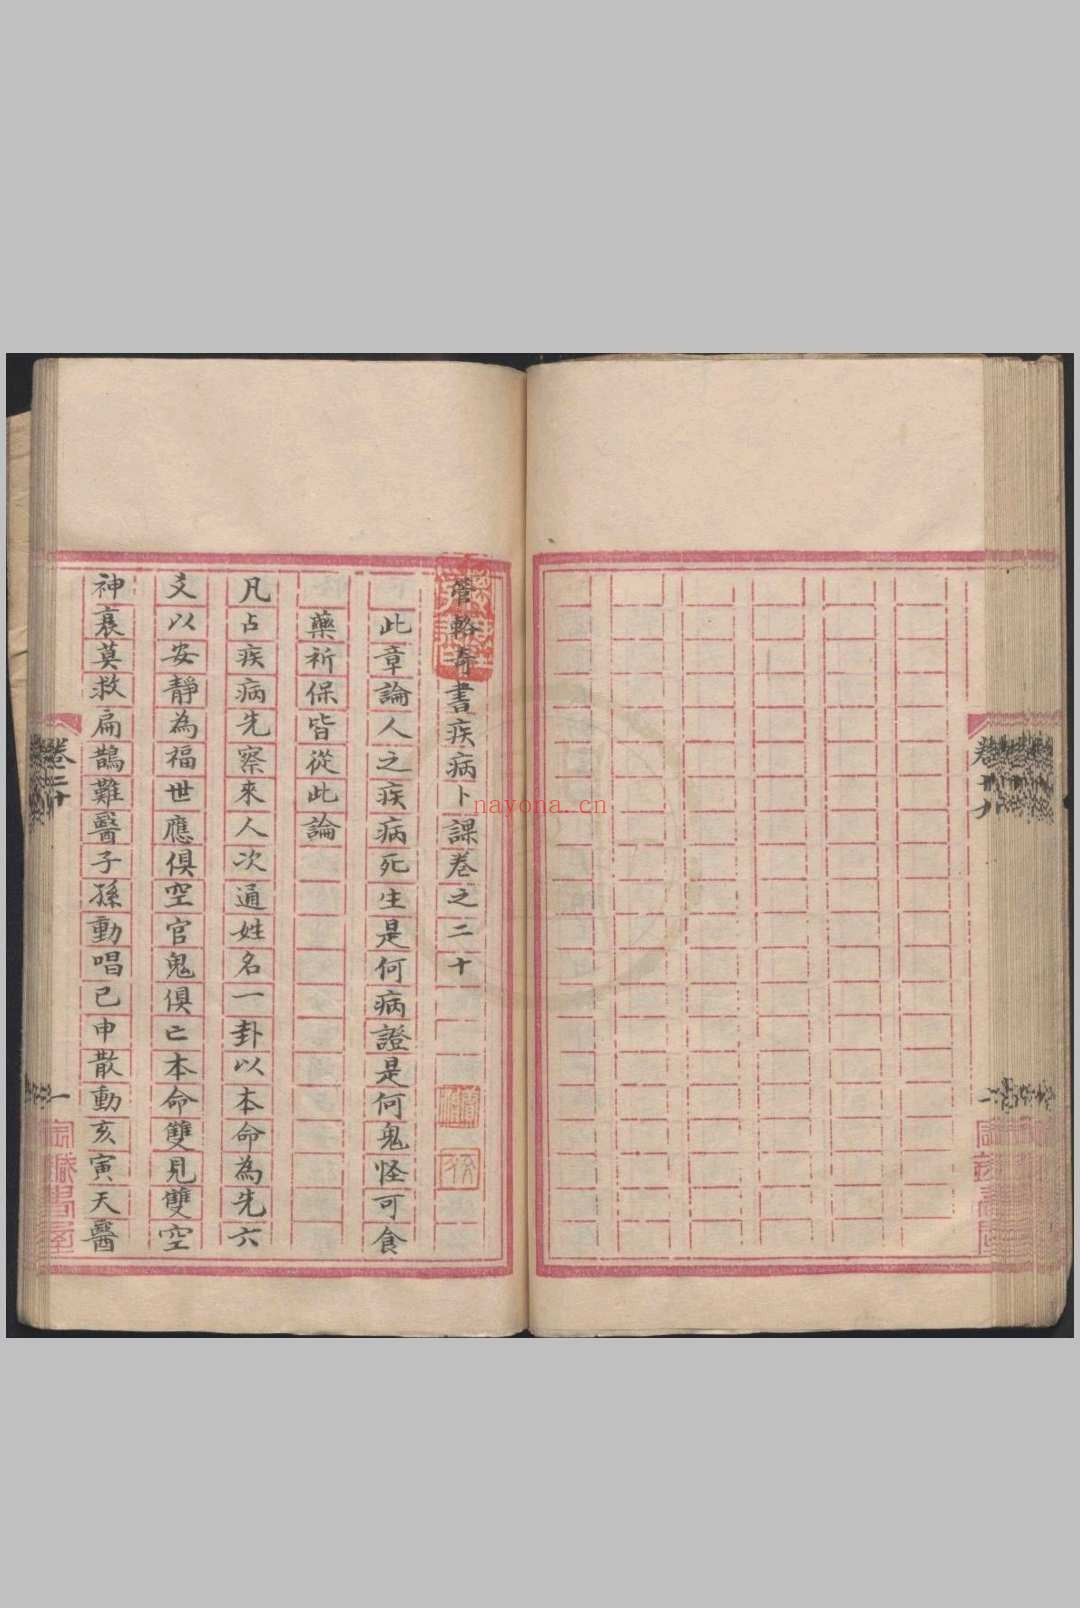 卷十九
管輅奇書疾病卜課卷之二十
此章論人之疾病死生是何病證是何鬼怪可食
藥祈保皆從此論
凡占疾病先察來人次通姓名一卦以本命為先六
爻以安靜為福世應俱空官鬼俱亡本命雙見雙空
神衰莫救扁鵲難醫子孫動唱已申散動亥寅天醫
卷二十
一
nayona.cn